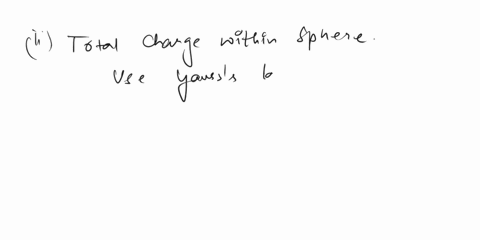 (ii) Total Charge within Sphere.
Use Gauss's